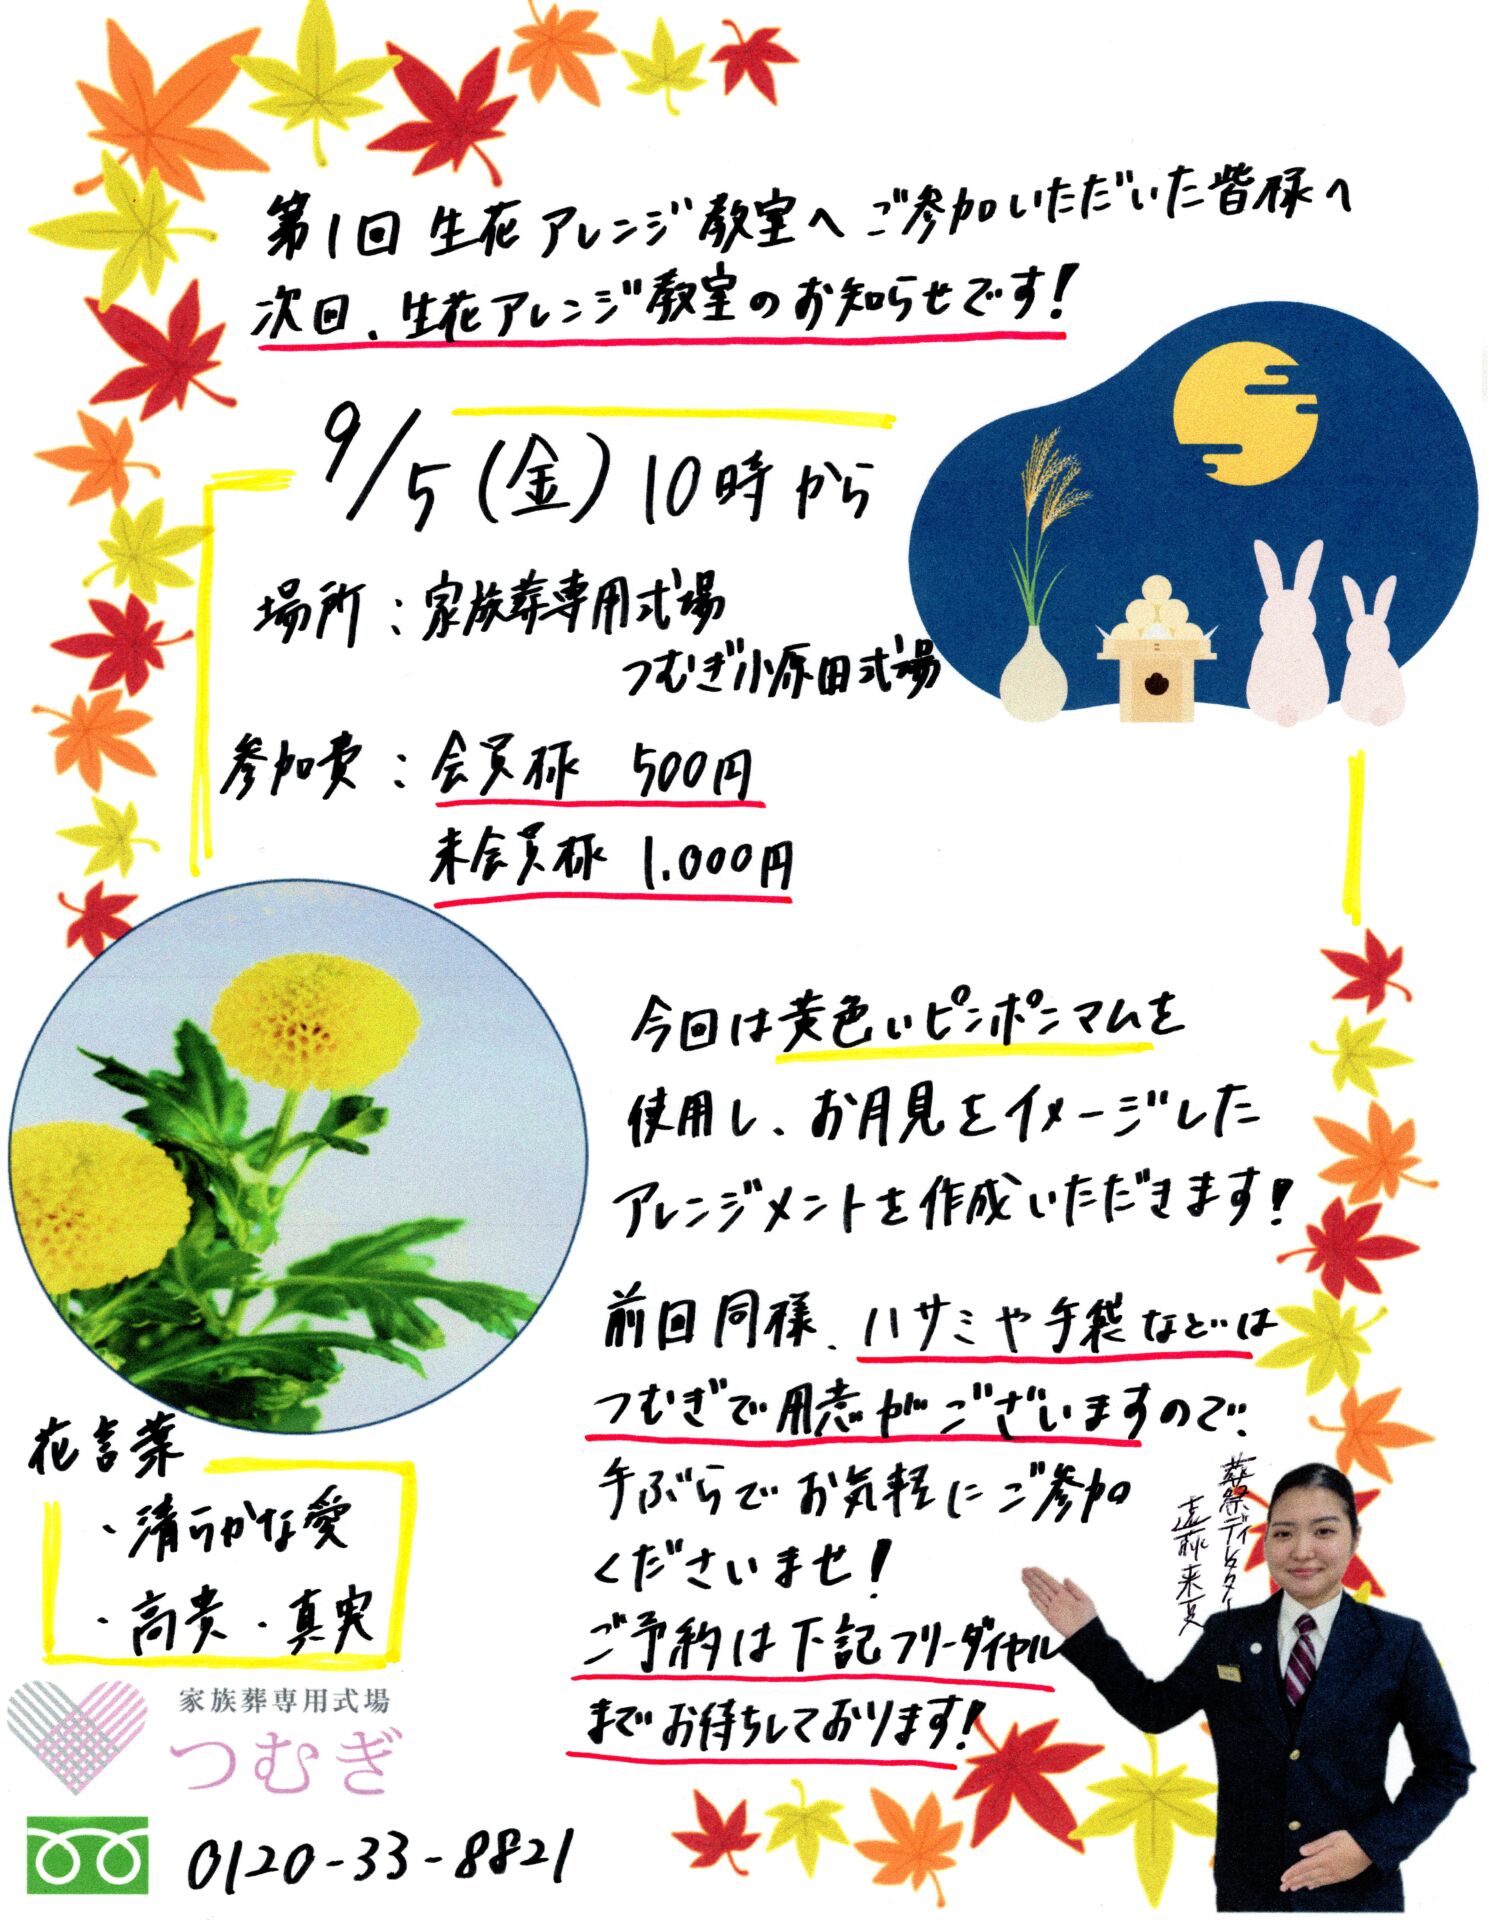 第1回 生花アレンジ教室へ ご参加いただいた皆様へ
次回、生花アレンジ教室のお知らせです!
9/5(金)10時から
場所:家族葬専用式場
つむぎ小原田式場
参加費:会員様 500円
未会員様 1.000円
今回は黄色いピンポンマムを
使用し、お月見をイメージした
アレンジメントを作成いただきます!
前回同様、ハサミや手袋などは
つむぎで用意がございますので、
手ぶらでお気軽にご参加
くださいませ!
ご予約は下記フリーダイヤル
までお待ちしております!
花言葉
・清らかな愛
・高貴・真実
葬祭ディレクター
遠藤来夏
家族葬専用式場
つむぎ
0120-33-8821